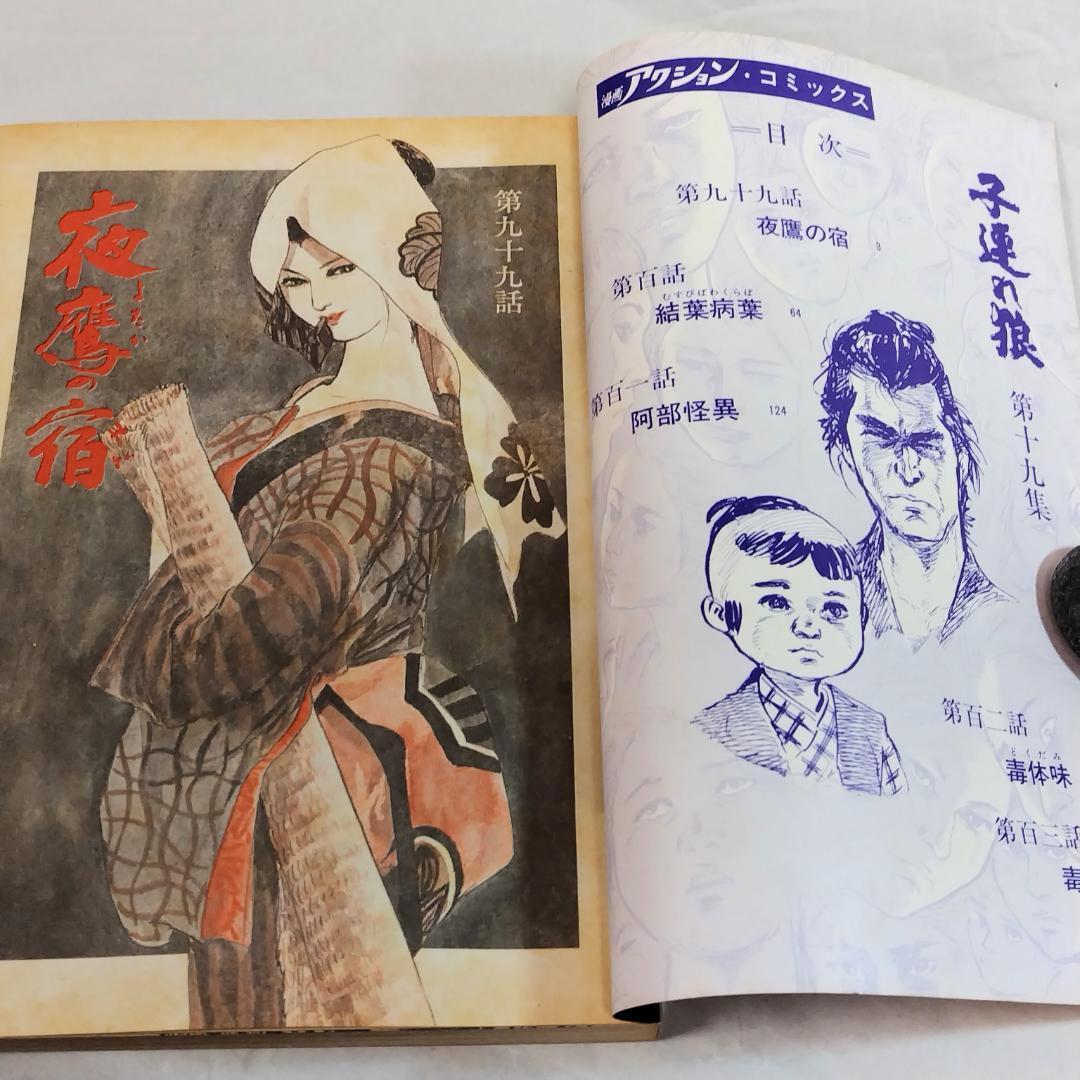 第九十九話
夜鷹の宿
よたか
漫画アクション・コミックス
＝目次＝
子連れ狼
第十九集
第九十九話
夜鷹の宿 3
第百話
むすびばわくらば
結葉病葉 64
第百一話
阿部怪異 124
第百二話
どくだみ
毒体味
第百三話
毒